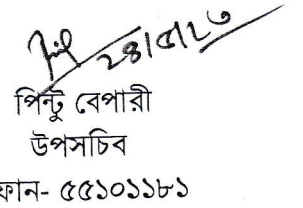 ২৪/৫/২৩
পিন্টু বেপারী
উপসচিব
ফোন- ৫৫১০১১৮১